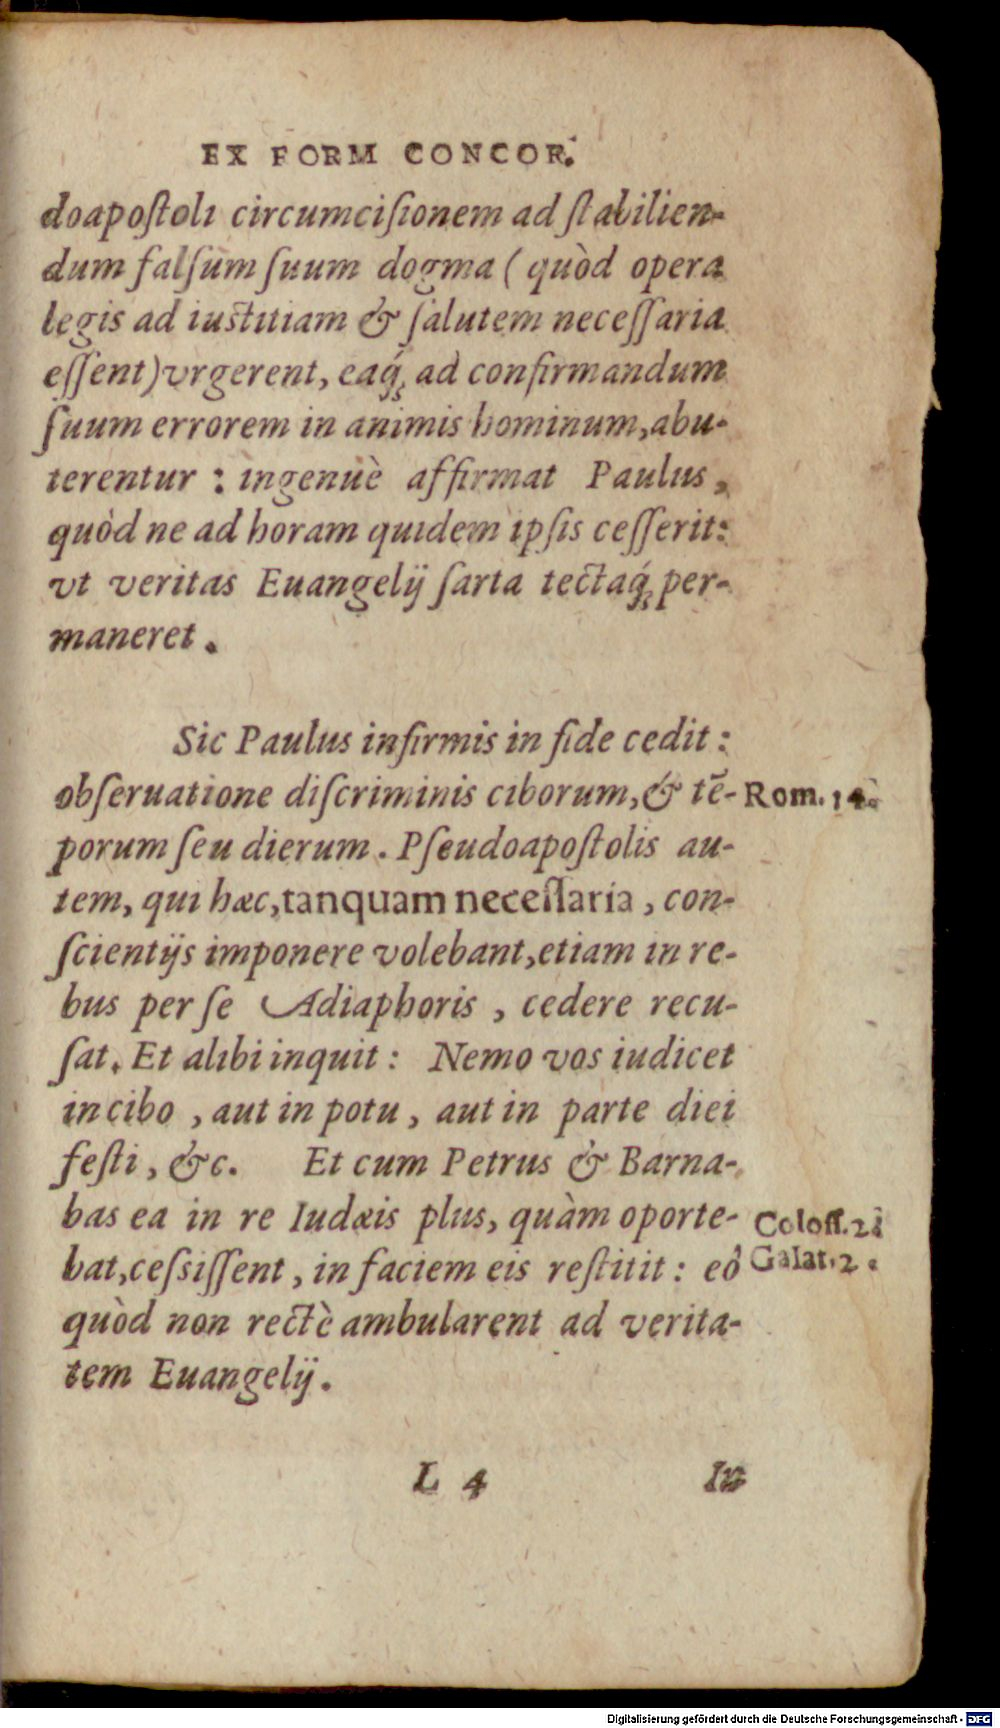 EX FORM CONCOR.
doapoſtoli circumciſionem ad ſtabilien-
dum falſum ſuum dogma ( quòd opera
legis ad iuſtitiam & ſalutem neceſſaria
eſſent) vrgerent, eaq́ꝫ ad confirmandum
ſuum errorem in animis hominum, abu-
terentur : ingenuè affirmat Paulus,
quòd ne ad horam quidem ipſis ceſſerit:
vt veritas Euangelij ſarta tectaq́ꝫ per-
maneret.
Sic Paulus infirmis in fide cedit :
obſeruatione diſcriminis ciborum, & tē- Rom. 14.
porum ſeu dierum. Pſeudoapoſtolis au-
tem, qui hæc, tanquam neceſſaria, con-
ſcientijs imponere volebant, etiam in re-
bus per ſe Adiaphoris, cedere recu-
ſat. Et alibi inquit : Nemo vos iudicet
in cibo, aut in potu, aut in parte diei
feſti, &c. Et cum Petrus & Barna-
bas ea in re Iudæis plus, quàm oporte- Coloſſ. 2.
bat, ceſsiſſent, in faciem eis reſtitit : eò Galat. 2.
quòd non rectè ambularent ad verita-
tem Euangelij.
L 4 In
Digitalisierung gefördert durch die Deutsche Forschungsgemeinschaft - DFG